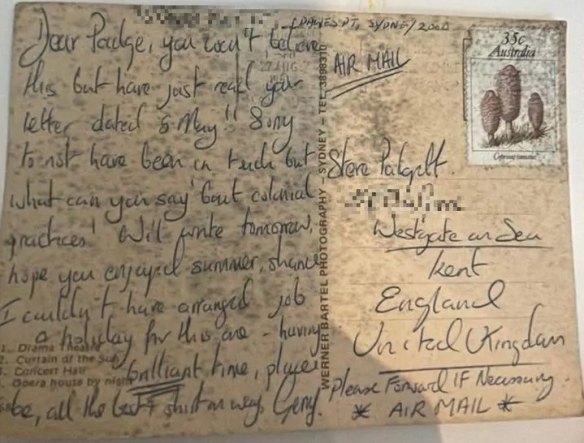 (DAWES PT, SYDNEY 2000
Dear Padge, you won't believe
this but have just read your
letter dated 6 May!! Sorry
to not have been in touch but
what can you say 'bout colonial
practices! Will write tomorrow,
hope you enjoyed summer, shame
I couldn't have arranged job
a holiday for this one - having
brilliant time, place
, all the best & shirt on way Gerry.
1. Drama Theatre
2. Curtain of the Sun
3. Concert Hall
4. Opera house by night
WERNER BARTEL PHOTOGRAPHY - SYDNEY - TEL. 3898370
27 AUG
AIR MAIL
35c
Australia
Coprinus comatus
Steve Padgett.
Westgate on Sea
Kent
England
United Kingdom
Please Forward IF Necessary.
* AIR MAIL *